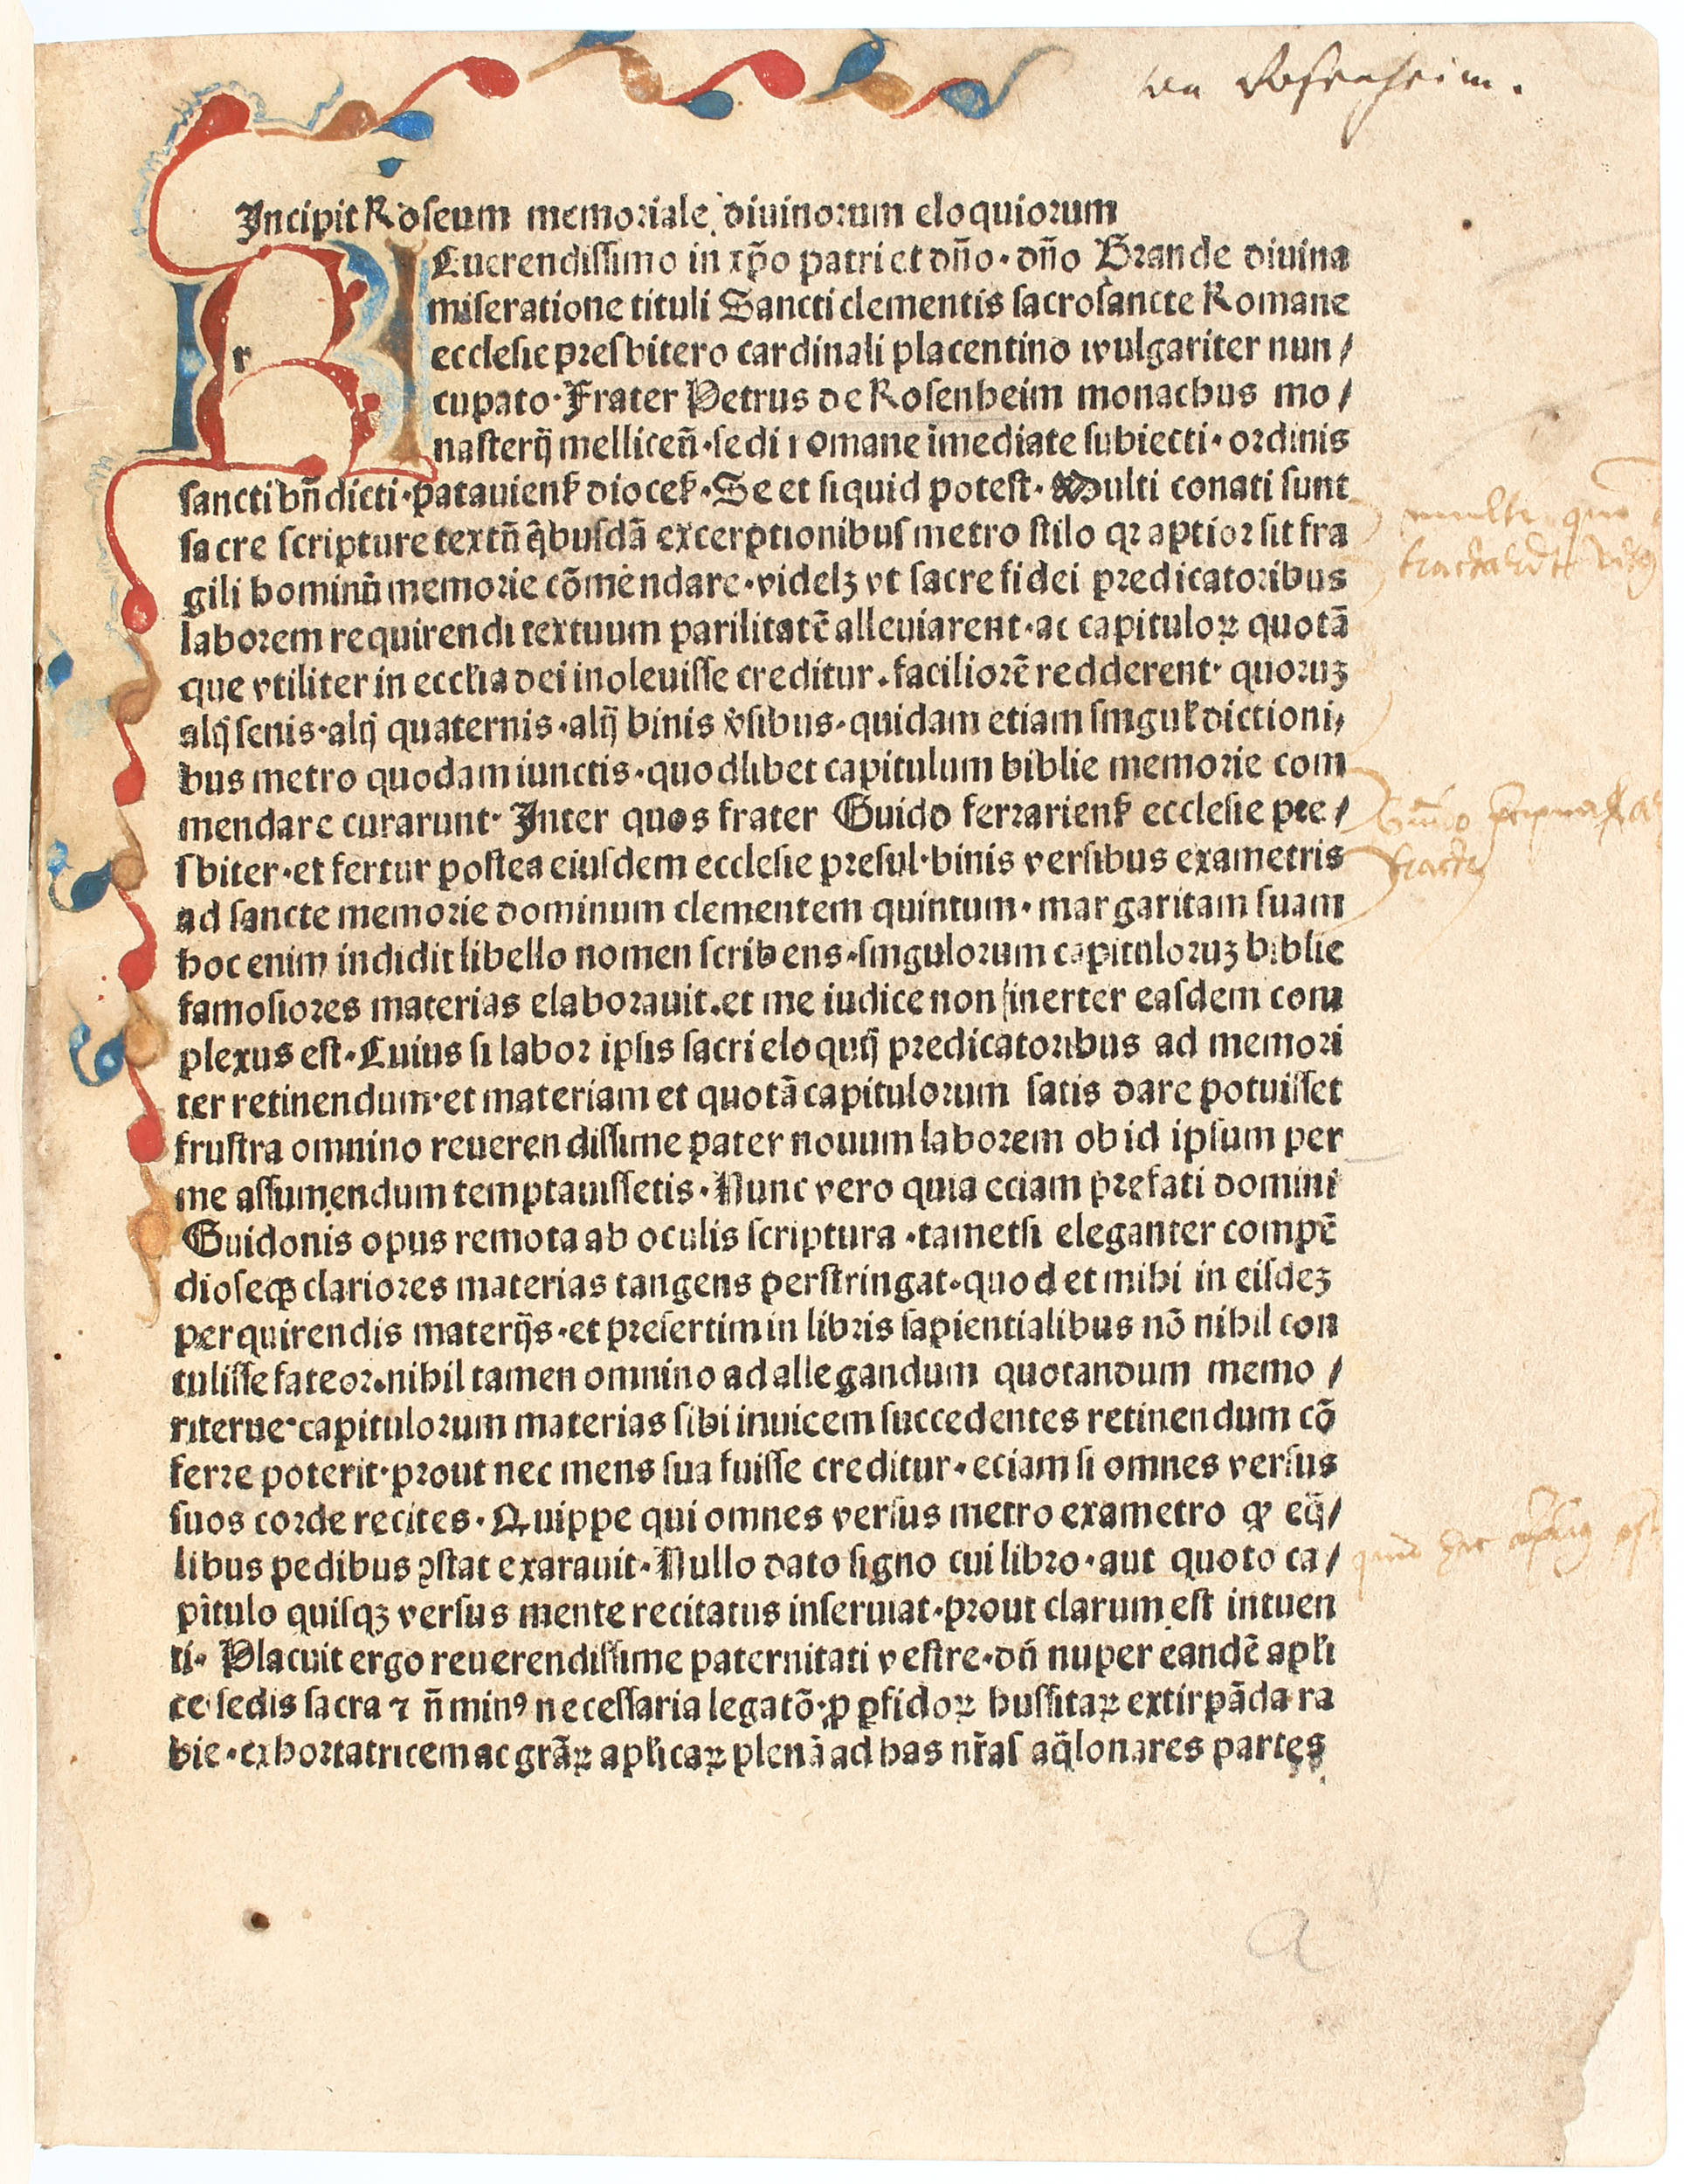 Incipit Roseum memoriale diuinorum eloquiorum
REuerendissimo in xp̄o patri et dn̄o · dn̄o Brande diuina
miseratione tituli Sancti clementis sacrosancte Romane
ecclesie presbitero cardinali placentino wulgariter nun/
cupato · Frater Petrus de Rosenheim monachus mo/
nasterij mellicen̄ · sedi romane īmediate subiecti · ordinis
sancti bn̄dicti · patauienẜ dioceẜ · Se et siquid potest · Multi conati sunt
sacre scripture textū q̄busdā excerptionibus metro stilo qꝛ aptior sit fra
gili hominū memorie cōmendare · videlꝫ vt sacre fidei predicatoribus
laborem requirendi textuum parilitatē alleuiarent · ac capituloꝝ quotā
que vtiliter in eccłia dei inoleuisse creditur · faciliorē redderent · quoruꝫ
alij senis · alij quaternis · alij binis v̄sibus · quidam etiam singuł dictioni/
bus metro quodam iunctis · quodlibet capitulum biblie memorie com
mendare curarunt · Inter quos frater Guido ferrarienẜ ecclesie pre/
sbiter · et fertur postea eiusdem ecclesie presul · binis versibus exametris
ad sancte memorie dominum clementem quintum · margaritam suam
hoc enim indidit libello nomen scribens · singulorum capituloruꝫ biblie
famosiores materias elaborauit · et me iudice non inerter easdem com
plexus est · Cuius si labor ipsis sacri eloquij predicatoribus ad memori
ter retinendum · et materiam et quotā capitulorum satis dare potuisset
frustra omnino reuerendissime pater nouum laborem ob id ipsum per
me assumendum temptauissetis · Nunc vero quia eciam prefati domini
Guidonis opus remota ab oculis scriptura · tametsi eleganter compē
dioseqꝫ clariores materias tangens perstringat · quod et mihi in eisdeꝫ
perquirendis materijs · et presertim in libris sapientialibus nō nihil con
tulisse fateor · nihil tamen omnino ad allegandum quotandum memo/
riterue capitulorum materias sibi inuicem succedentes retinendum cō
ferre poterit · prout nec mens sua fuisse creditur · eciam si omnes versus
suos corde recites · Quippe qui omnes versus metro exametro qꝫ eq̄/
libus pedibus ꝯstat exarauit · Nullo dato signo cui libro · aut quoto ca/
pitulo quisqꝫ versus mente recitatus inseruiat · prout clarum est intuen
ti · Placuit ergo reuerendissime paternitati vestre · dn̄ nuper eandē apłi
ce sedis sacra ⁊ n̄ minꝰ necessaria legatō · ꝓ ꝑfidoꝝ hussitaꝝ extirpāda ra
bie · exhortatricem ac grāꝝ apłicaꝝ plenā ad has nr̄as aq̄lonares partes
a